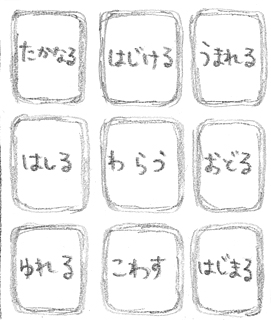 たかなる
はじける
うまれる
はしる
わらう
おどる
ゆれる
こわす
はじまる